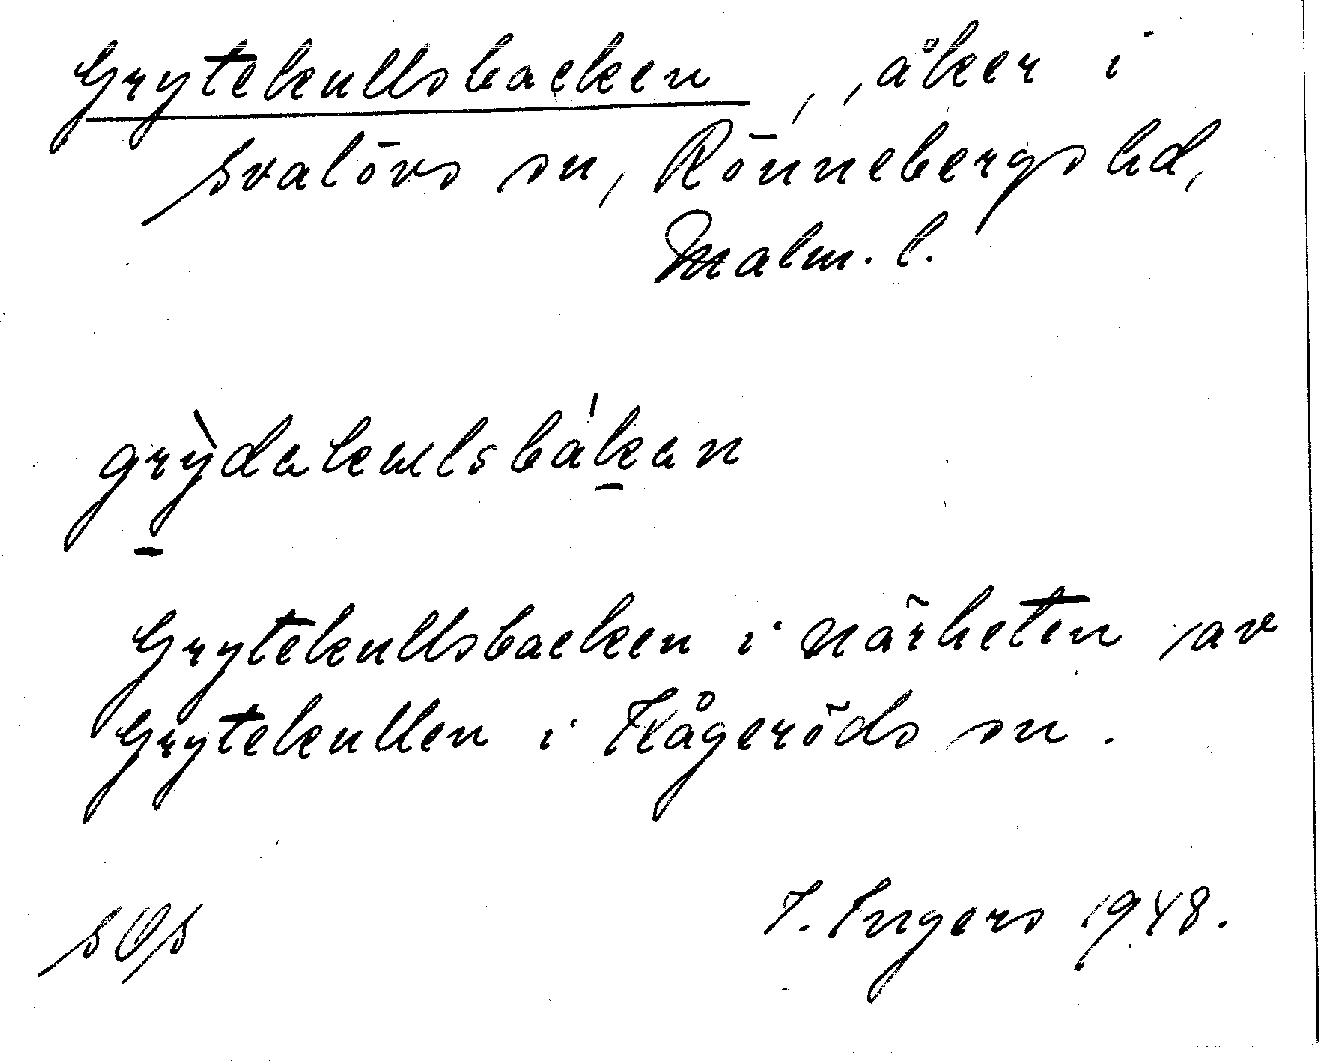 Grytekullsbacken, åker i
Svalövs sn, Rönnebergs hd,
Malm. l.
grỳdakulsbákan
Grytekullsbacken i närheten av
Grytekullen i Kågeröds sn.
SOS
I. Ingers 1948.